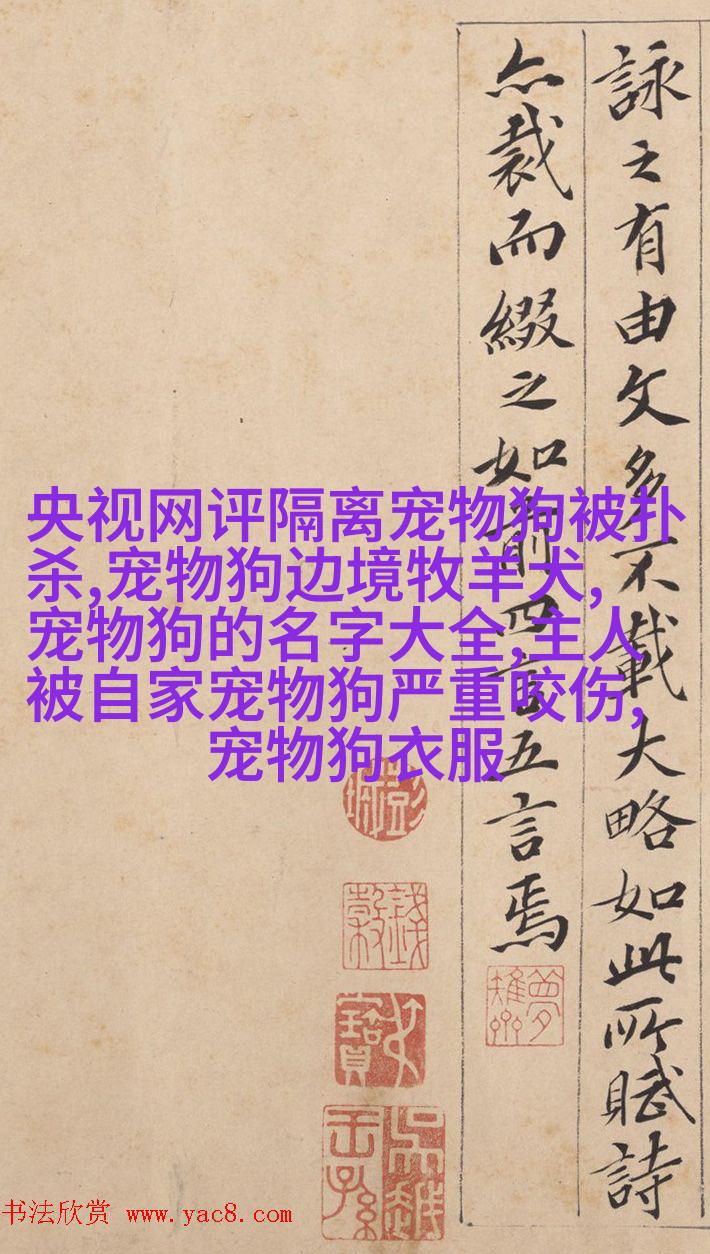 詠之有由文多不載大略如此所賦詩
亦裁而綴之如前四言五言焉
央视网评隔离宠物狗被扑
杀,宠物狗边境牧羊犬,
宠物狗的名字大全,主人
被自家宠物狗严重咬伤,
宠物狗衣服
彭城
錢穀
吳越王孫
书法欣赏 www.yac8.com